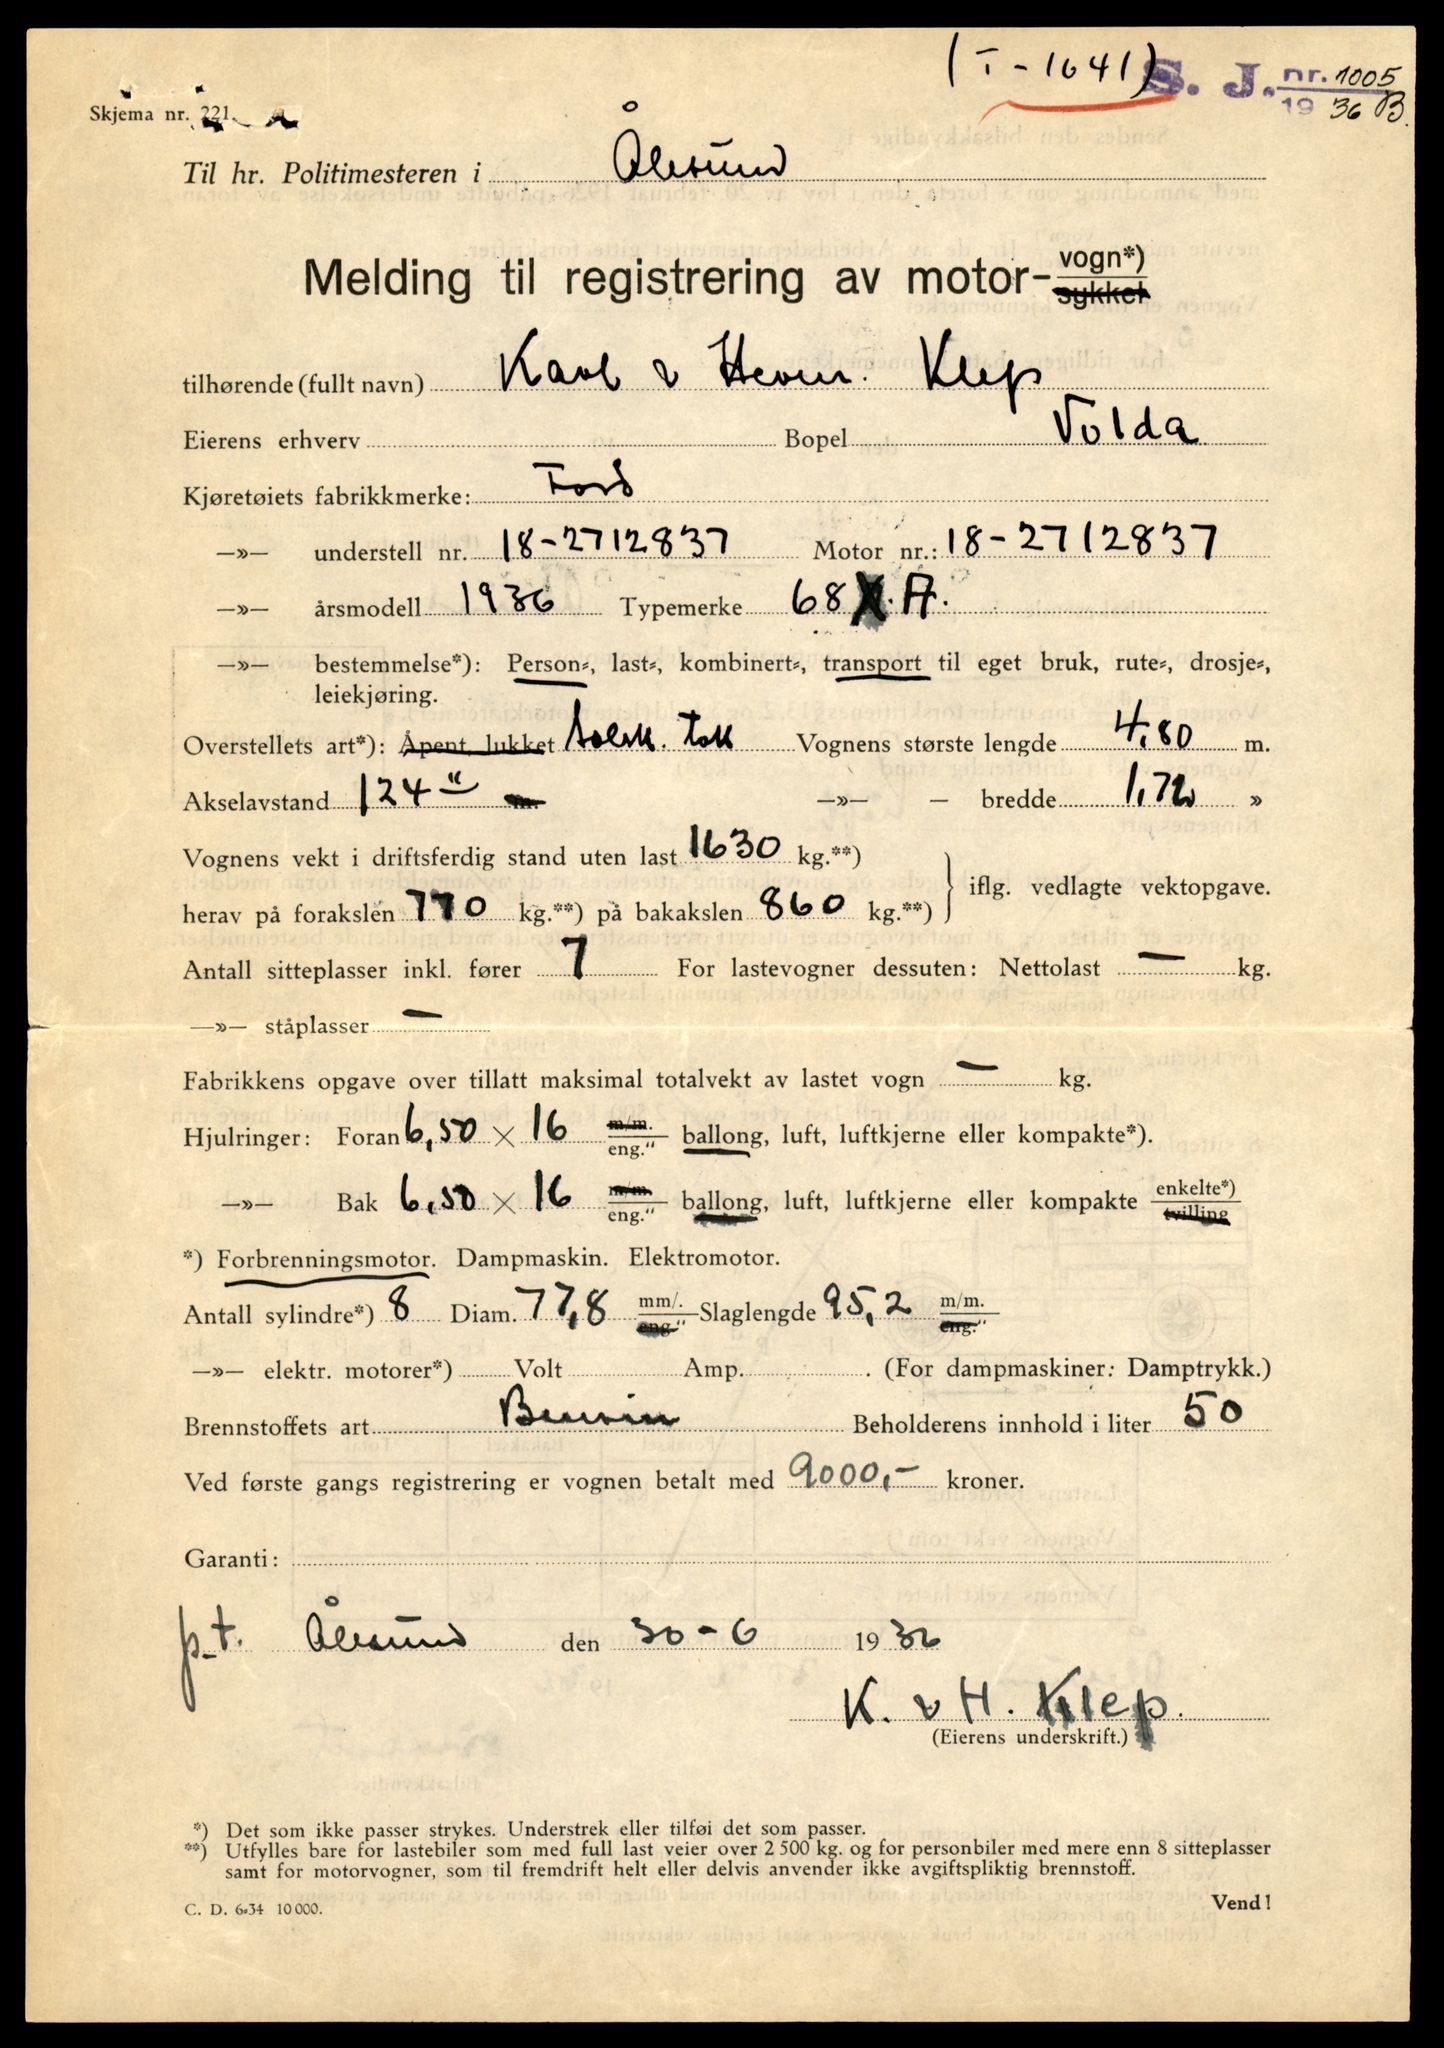 (T-1641) S. J. nr. 1005
19 36 B.
Skjema nr. 221. a
Til hr. Politimesteren i Ålesund
Melding til registrering av motor-vogn*)
sykkel
tilhørende (fullt navn) Karl & Herm. Klep
Eierens erhverv Bopel Volda
Kjøretøiets fabrikkmerke: Ford
—»— understell nr. 18-2712837 Motor nr.: 18-2712837
—»— årsmodell 1936 Typemerke 68 A.
—»— bestemmelse*): Person-, last-, kombinert-, transport til eget bruk, rute-, drosje-,
leiekjøring.
Overstellets art*): Åpent, lukket tak Vognens største lengde 4,80 m.
Akselavstand 124" m. —»— — bredde 1,72 »
Vognens vekt i driftsferdig stand uten last 1630 kg.**)
herav på forakslen 770 kg.**) på bakakslen 860 kg.**) } iflg. vedlagte vektopgave.
Antall sitteplasser inkl. fører 7 For lastevogner dessuten: Nettolast — kg.
—»— ståplasser —
Fabrikkens opgave over tillatt maksimal totalvekt av lastet vogn — kg.
Hjulringer: Foran 6,50 × 16 m/m. eng." ballong, luft, luftkjerne eller kompakte*).
—»— Bak 6,50 × 16 m/m eng." ballong, luft, luftkjerne eller kompakte enkelte*) tvilling
*) Forbrenningsmotor. Dampmaskin. Elektromotor.
Antall sylindre*) 8 Diam. 77,8 mm/. eng." Slaglengde 95,2 m/m. eng."
—»— elektr. motorer*) Volt Amp. . (For dampmaskiner: Damptrykk.)
Brennstoffets art Bensin Beholderens innhold i liter 50
Ved første gangs registrering er vognen betalt med 9000,- kroner.
Garanti:
p.t. Ålesund den 30-6 1936
K. & H. Klep.
(Eierens underskrift.)
*) Det som ikke passer strykes. Understrek eller tilføi det som passer.
**) Utfylles bare for lastebiler som med full last veier over 2 500 kg. og for personbiler med mere enn 8 sitteplasser
samt for motorvogner, som til fremdrift helt eller delvis anvender ikke avgiftspliktig brennstoff.
C. D. 6-34 10 000. Vend!